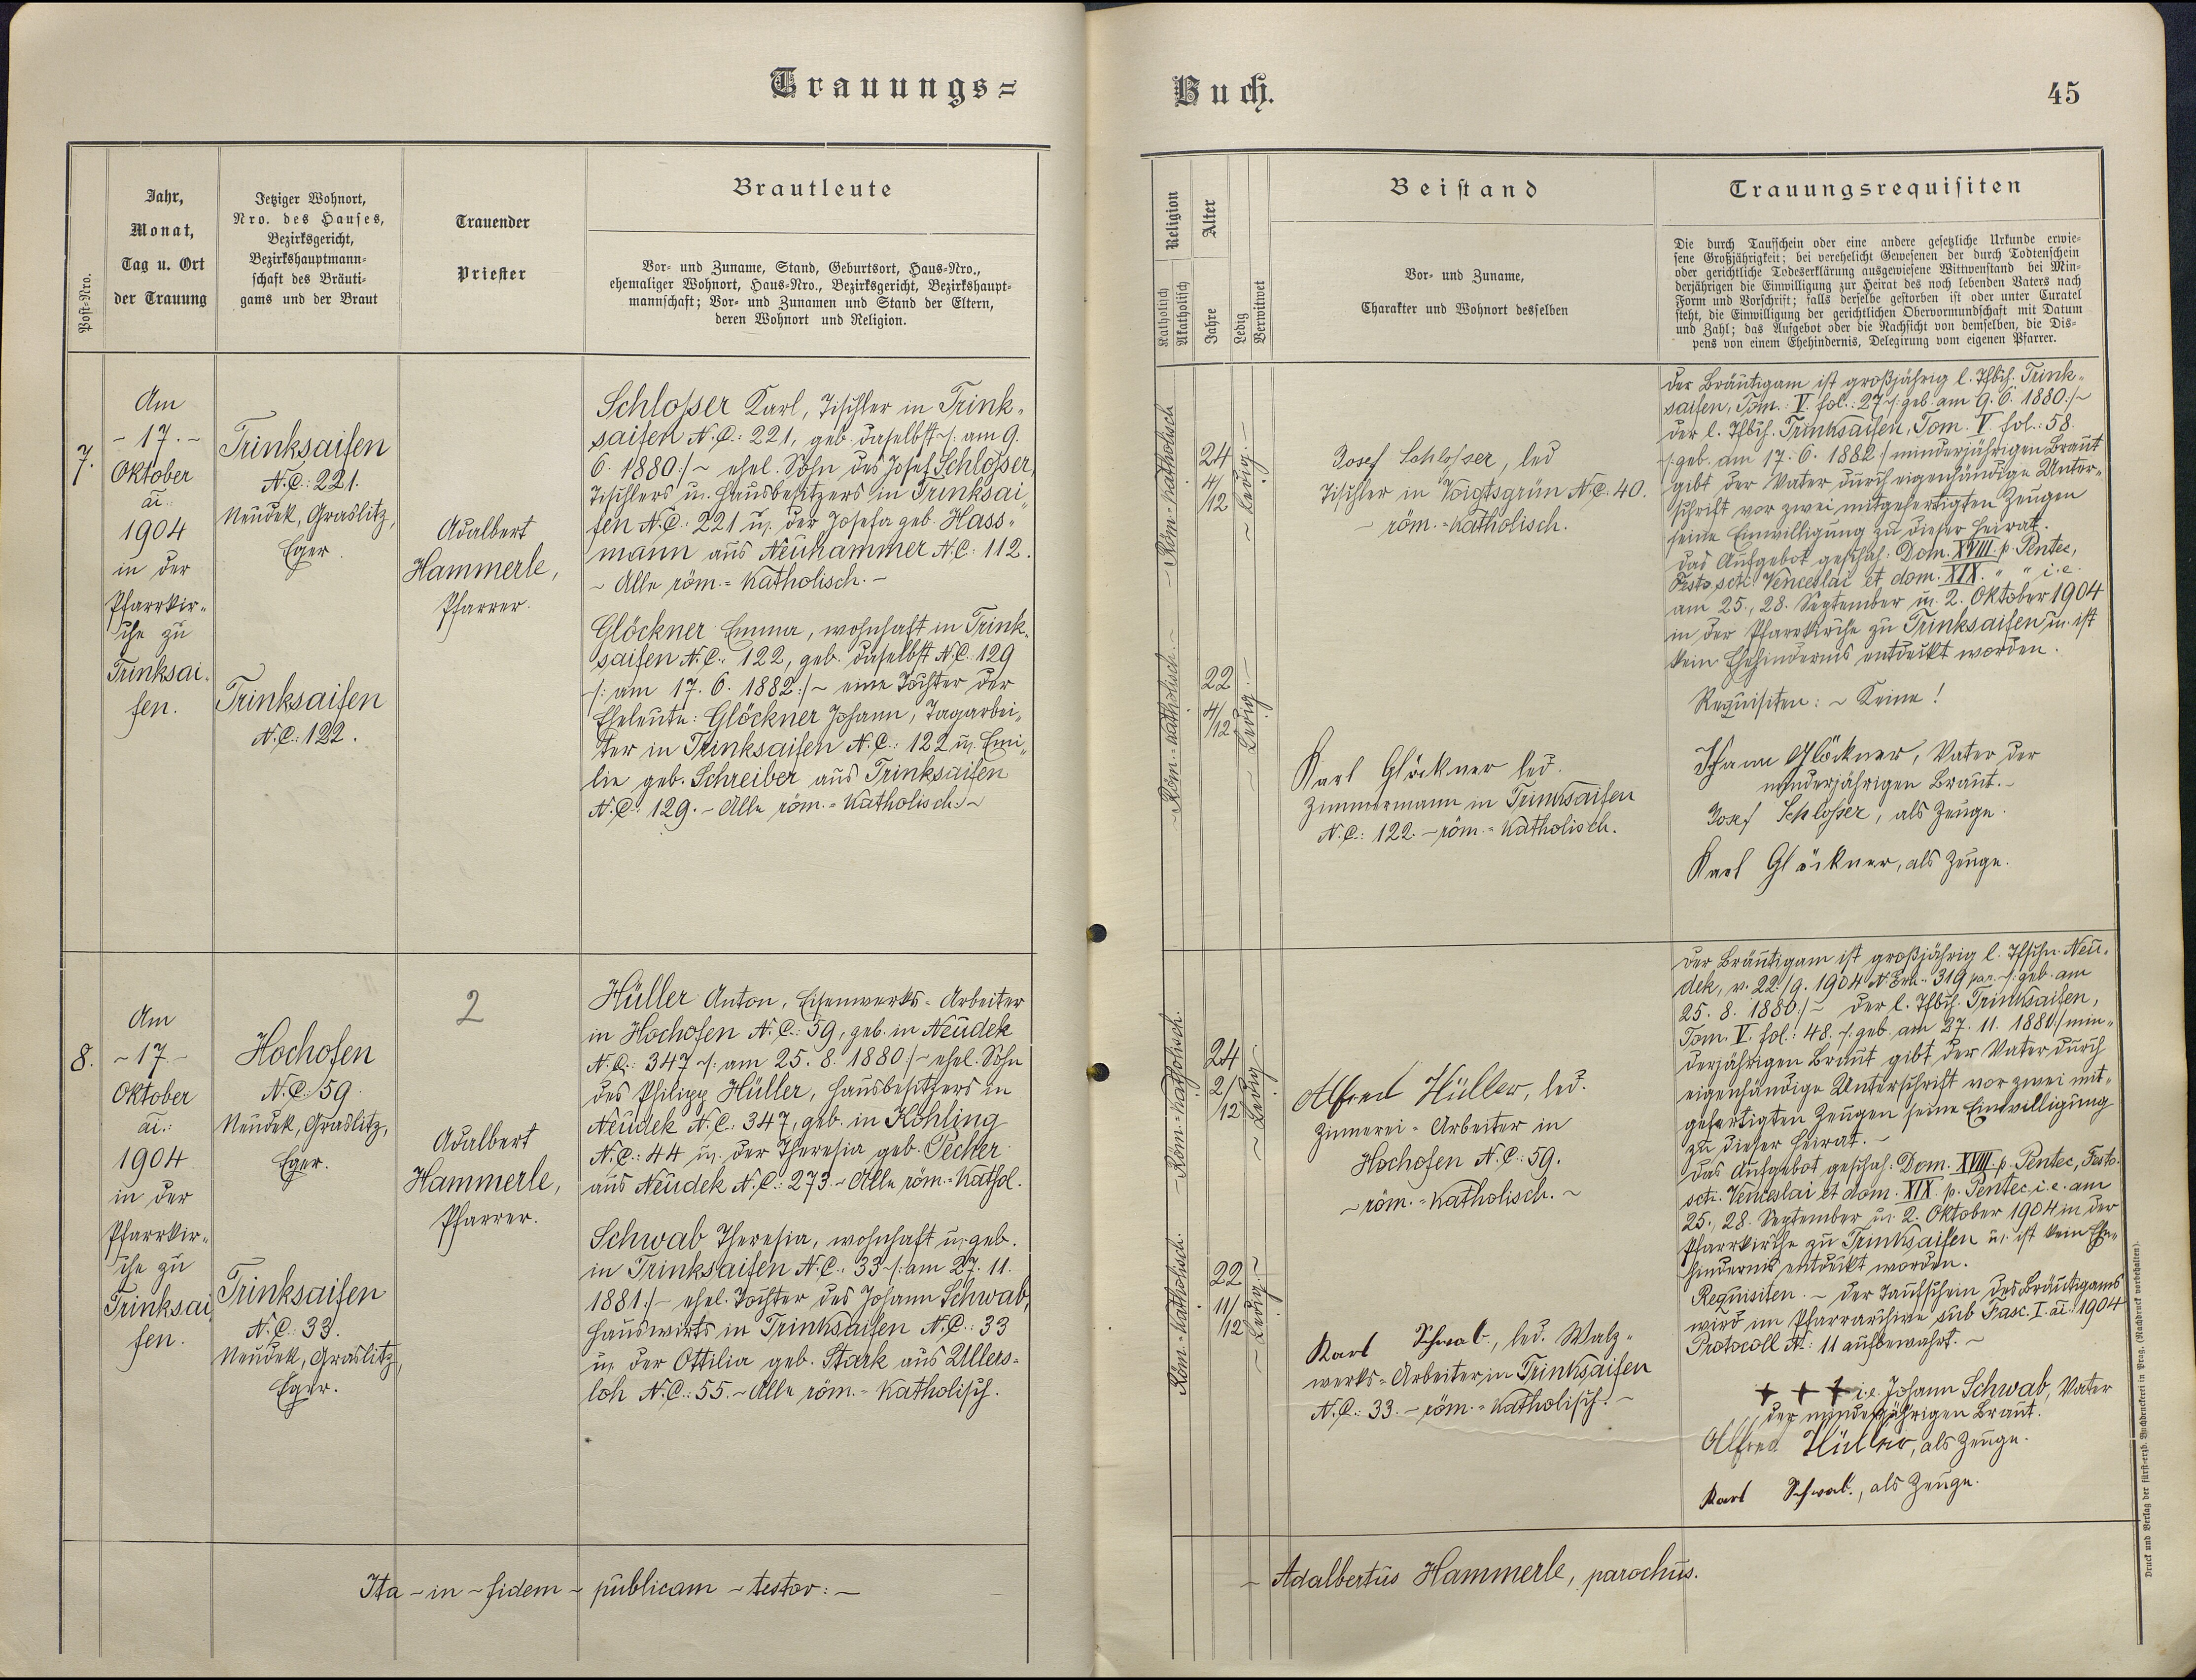 Trauungs=
Buch.
45
Post-Nro.
Jahr,
Monat,
Tag u. Ort
der Trauung
Jetziger Wohnort,
Nro. des Hauses,
Bezirksgericht,
Bezirkshauptmann-
schaft des Bräuti-
gams und der Braut
Trauender
Priester
Brautleute
Vor- und Zuname, Stand, Geburtsort, Haus-Nro.,
ehemaliger Wohnort, Haus-Nro., Bezirksgericht, Bezirkshaupt-
mannschaft; Vor- und Zunamen und Stand der Eltern,
deren Wohnort und Religion.
Religion
Katholisch
Akatholisch
Alter
Jahre
Ledig
Verwitwet
Beistand
Vor- und Zuname,
Charakter und Wohnort desselben
Trauungsrequisiten
Die durch Taufschein oder eine andere gesetzliche Urkunde erwie-
sene Großjährigkeit; bei verehelicht Gewesenen der durch Todtenschein
oder gerichtliche Todeserklärung ausgewiesene Wittwenstand bei Min-
derjährigen die Einwilligung zur Heirat des noch lebenden Vaters nach
Form und Vorschrift; falls derselbe gestorben ist oder unter Curatel
steht, die Einwilligung der gerichtlichen Obervormundschaft mit Datum
und Zahl; das Aufgebot oder die Nachsicht von demselben, die Dis-
pens von einem Ehehindernis, Delegirung vom eigenen Pfarrer.
7.
Am
- 17. -
Oktober
ai.:
1904
in der
Pfarrkir-
che zu
Trinksai-
fen.
Trinksaifen
N.C.: 221.
Neudek, Graslitz,
Eger.
Trinksaifen
N.C.: 122.
Adalbert
Hammerle,
Pfarrer.
Schlosser Karl, Tischler in Trink-
saifen N.C.: 221, geb. daselbst /: am 9.
6. 1880 :/ ~ ehel. Sohn des Josef Schlosser,
Tischlers u. Hausbesitzers in Trinksai-
fen N.C. 221 u. der Josefa geb. Hass-
mann aus Neuhammer N.C: 112.
~ Alle röm.= Katholisch. -
Glöckner Emma, wohnhaft in Trink-
saifen N.C.: 122, geb. daselbst N.C. 129
/: am 17. 6. 1882 :/ ~ eine Tochter der
Eheleute: Glöckner Johann, Tagarbei-
ter in Trinksaifen N.C.: 122 u. Emi-
lie geb. Schreiber aus Trinksaifen
N.C. 129. - Alle röm.= Katholisch. ~
~ Röm.= Katholisch
24
4/
12
~ Ledig. ~
~ Röm.= Katholisch. ~
22
4/
12
~ Ledig. ~
Josef Schlosser, led
Tischler in Voigtsgrün N.C. 40.
- röm.= Katholisch.
Karl Glöckner led.
Zimmermann in Trinksaifen
N.C.: 122. - röm.= Katholisch.
Der Bräutigam ist großjährig l. Tfbch. Trink-
saifen, Tom.: V. fol.: 27 /: geb. am 9. 6. 1880 :/ ~
der l. Tfbch. Trinksaifen, Tom. V. fol.: 58.
/: geb. am 17. 6. 1882 :/ minderjährigen Braut
gibt der Vater durch eigenhändige Unter-
schrift vor zwei mitgefertigten Zeugen
seine Einwilligung zu dieser Heirat.
Das Aufgebot geschah: Dom. XVIII. p. Pentec,
Festo scti. Venceslai et dom. XIX. " " i.e.
am 25., 28. September u. 2. Oktober 1904
in der Pfarrkirche zu Trinksaifen u. ist
kein Ehehindernis entdeckt worden.
Requisiten: ~ Keine!
Johann Glöckner, Vater der
minderjährigen Braut. -
Josef Schlosser, als Zeuge.
Karl Glöckner, als Zeuge.
8.
Am
~ 17. -
Oktober
ai.:
1904
in der
Pfarrkir-
che zu
Trinksai
fen.
Hochofen
N.C. 59.
Neudek, Graslitz,
Eger.
Trinksaifen
N.C.: 33.
Neudek, Graslitz,
Eger.
2
Adalbert
Hammerle,
Pfarrer.
Hüller Anton, Eisenwerks-Arbeiter
in Hochofen N.C.: 59, geb. in Neudek
N.C.: 347 /: am 25. 8. 1880 :/ ~ ehel. Sohn
des Philipp Hüller, Hausbesitzers in
Neudek N.C.: 347, geb. in Kohling
N.C.: 44 u. der Theresia geb. Pecher
aus Neudek N.C.: 273. ~ Alle röm.= Kathol.
Schwab Theresia, wohnhaft u. geb.
in Trinksaifen N.C. 33 /: am 27. 11.
1881 :/ - ehel. Tochter des Johann Schwab,
Hauswirts in Trinksaifen N.C.: 33
u. der Ottilia geb. Stark aus Ullers-
loh N.C.: 55. ~ Alle röm.= Katholisch.
~ Röm.= Katholisch.
24
2/
12
~ Ledig. ~
Röm.= Katholisch.
22
11/
12
~ Ledig. ~
Alfred Hüller, led.
Zinnerei = Arbeiter in
Hochofen N.C.: 59.
~ röm.= Katholisch. ~
Karl Schwab, led. Walz-
werks = Arbeiter in Trinksaifen
N.C.: 33. - röm.= Katholisch. -
Der Bräutigam ist großjährig l. Tfschn. Neu-
dek, v. 22./9. 1904 N. Exh.: 319 par. /: geb. am
25. 8. 1880 :/ ~ Der l. Tfbch. Trinksaifen,
Tom. V. fol.: 48. /: geb. am 27. 11. 1881 :/ min-
derjährigen Braut gibt der Vater durch
eigenhändige Unterschrift vor zwei mit-
gefertigten Zeugen seine Einwilligung
zu dieser Heirat. -
Das Aufgebot geschah: Dom. XVIII. p. Pentec, Festo
scti. Venceslai et dom. XIX. p. Pentec, i.e. am
25., 28. September u. 2. Oktober 1904 in der
Pfarrkirche zu Trinksaifen u. ist kein Ehe-
hindernis entdeckt worden.
Requisiten. ~ Der Taufschein des Bräutigams
wird im Pfarrarchive sub Fasc. I. ai. 1904
Protocoll N.: 11 aufbewahrt. ~
+ + + i.e. Johann Schwab, Vater
der minderjährigen Braut.
Alfred Hüller, als Zeuge.
Karl Schwab., als Zeuge.
Ita - in - fidem - publicam - testor: -
~ Adalbertus Hammerle, parochus.
Druck und Verlag der fürst-erzb. Buchdruckerei in Prag. (Nachdruck vorbehalten).